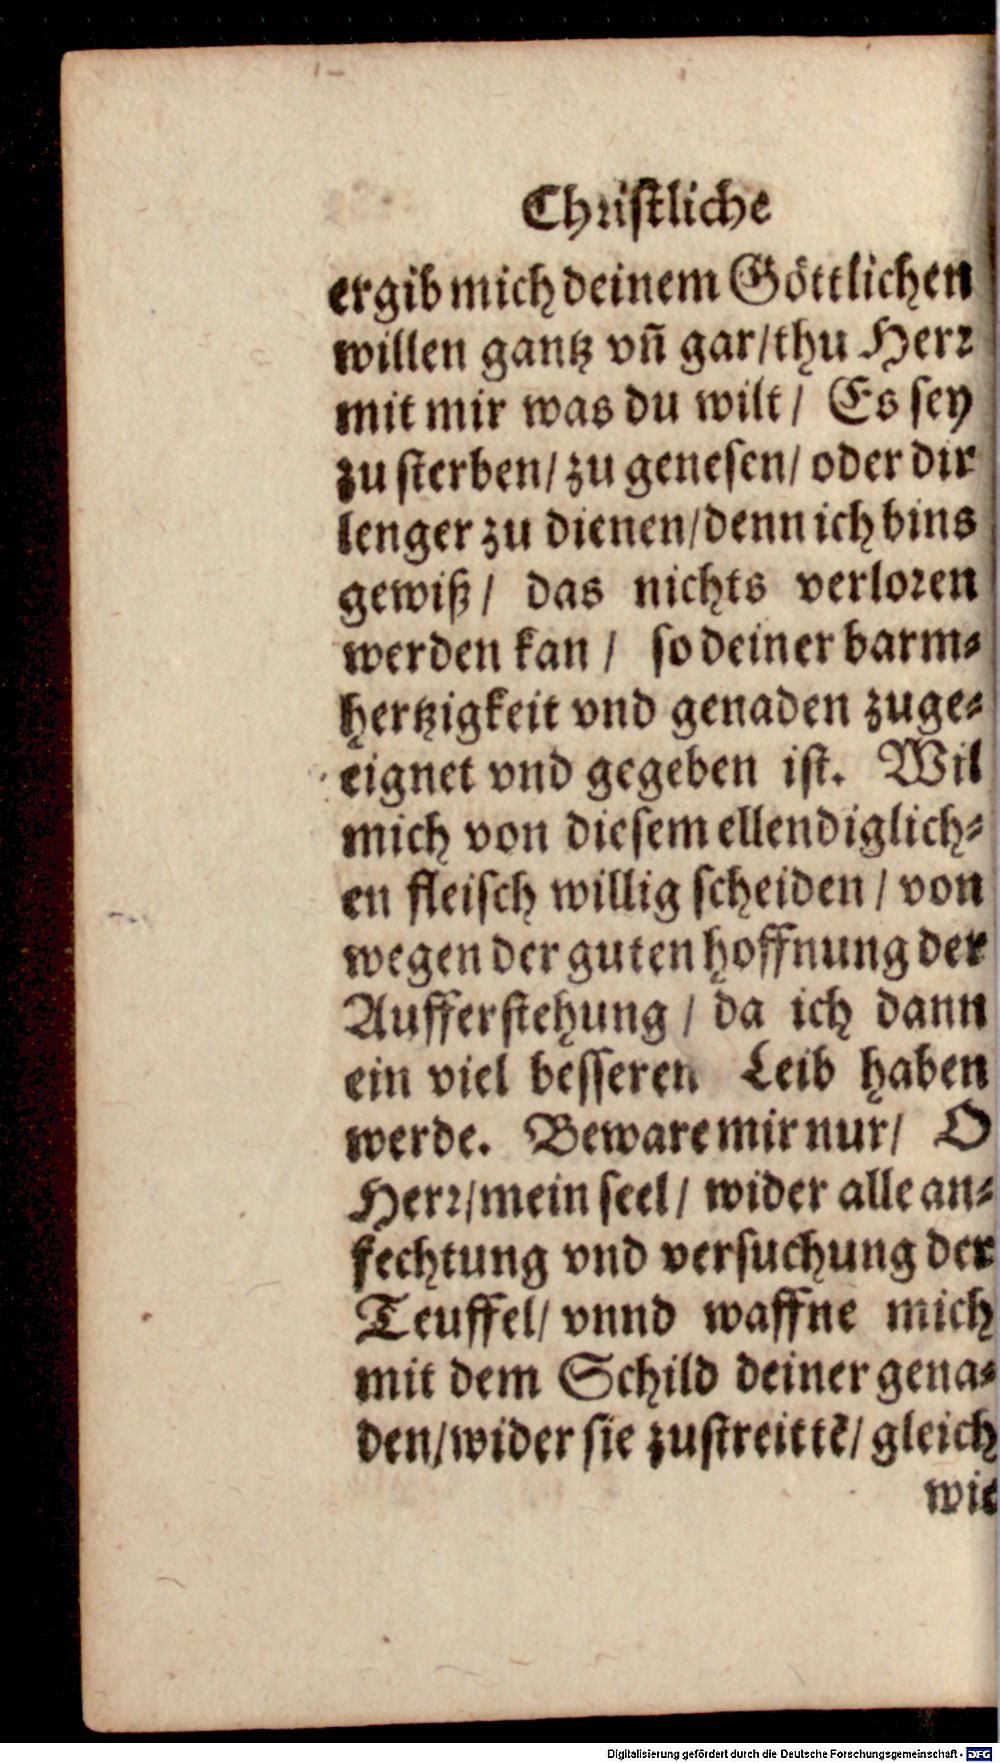 Christliche
ergib mich deinem Göttlichen
willen gantz vñ gar/thu Herr
mit mir was du wilt/ Es sey
zu sterben/zu genesen/ oder dir
lenger zu dienen/denn ich bins
gewiß/ das nichts verloren
werden kan/ so deiner barm⸗
hertzigkeit vnd genaden zuge⸗
eignet vnd gegeben ist. Wil
mich von diesem ellendiglich⸗
en fleisch willig scheiden/ von
wegen der guten hoffnung der
Aufferstehung/ da ich dann
ein viel besseren Leib haben
werde. Beware mir nur/ O
Herr/mein seel/ wider alle an⸗
fechtung vnd versuchung der
Teuffel/ vnnd waffne mich
mit dem Schild deiner gena⸗
den/wider sie zustreittē/ gleich
wie
Digitalisierung gefördert durch die Deutsche Forschungsgemeinschaft - DFG